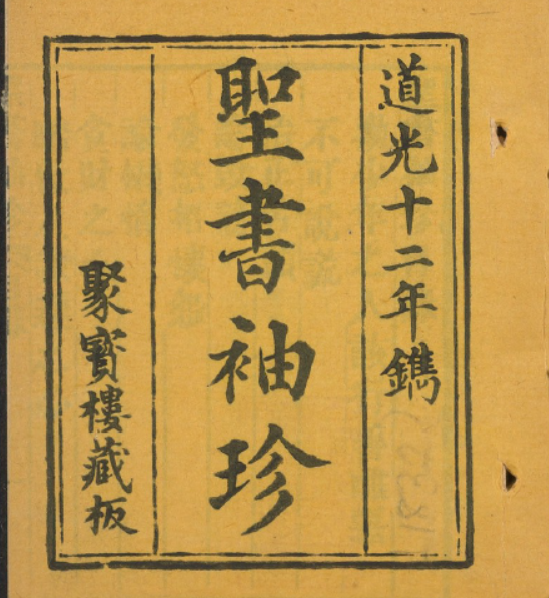 道光十二年鐫
聖書袖珍
聚寳樓藏板